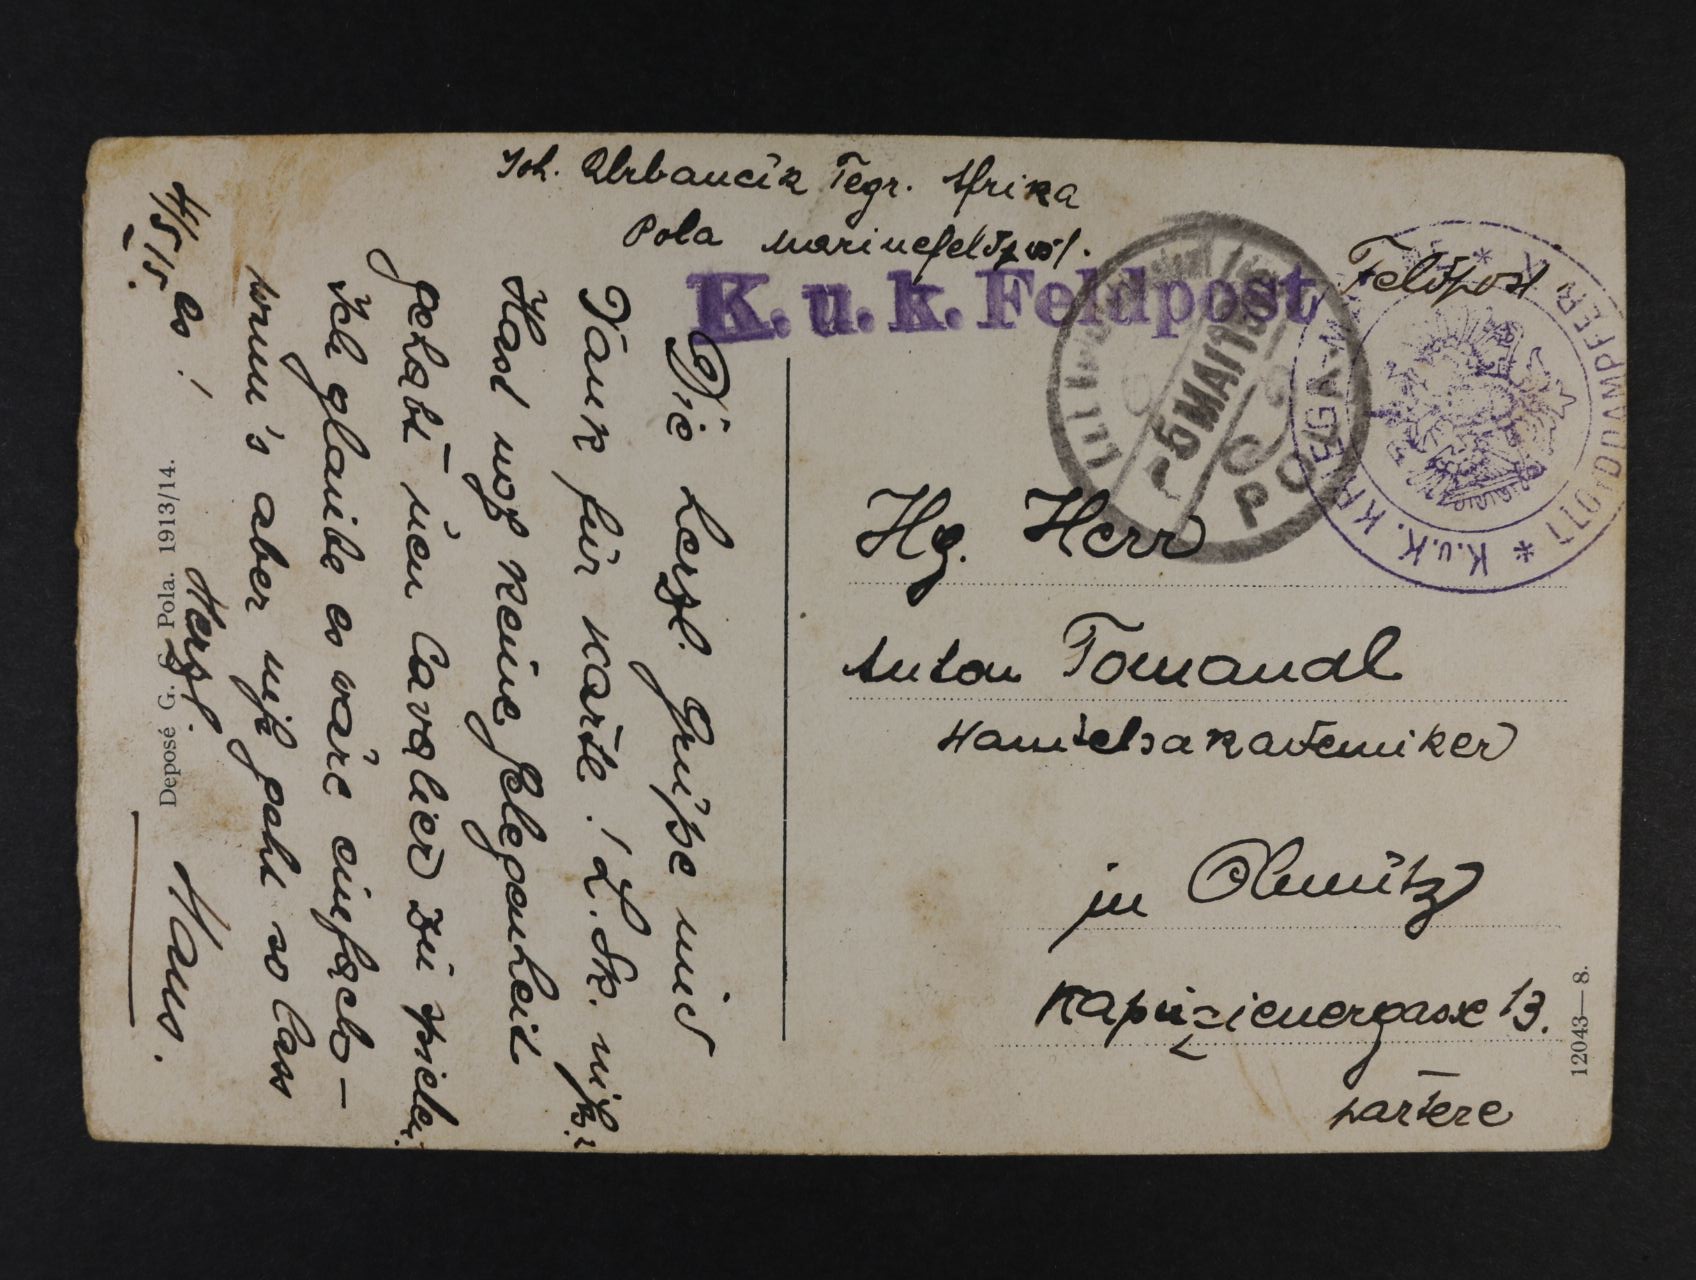 Joh. Urbancik Tegr. Afrika
Pola Marinefeldpost.
Feldpost
K.u.k. Feldpost
-5 MAI 15
POLA
* K.u.K. KRIEGS-M
LLOYDDAMPFER
Hg. Herr
Anton Tomandl
Handelsakademiker
in Olmütz
Kapuzienergasse 13.
partere
4/5 15.
Die herzl. Grüße und
Dank für Karte! L. Sk. nix!
Hast noch keine Gelegenheit
gehabt den Cavalier zu spielen.
Ich glaube es wäre einfach –
wenn's aber nicht geht so lass
es!
Herzl.
Hans.
Deposé G. C. Pola. 1913/14.
12043—8.